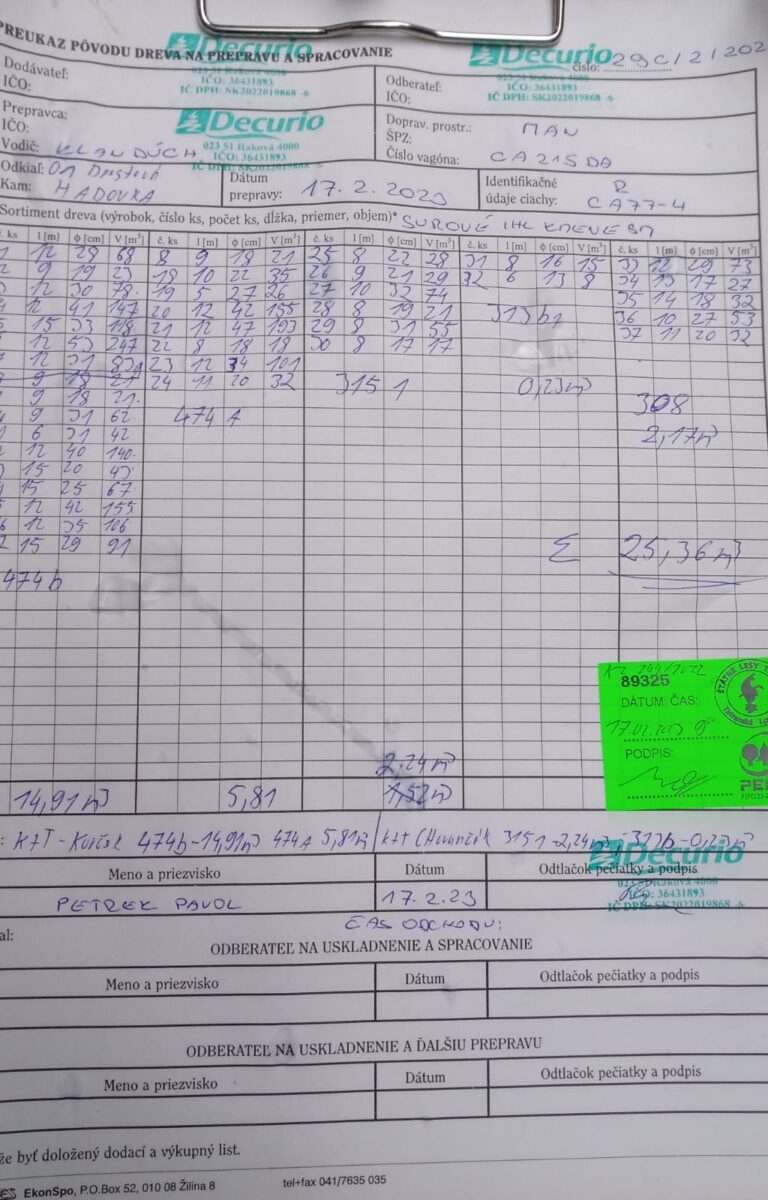 PREUKAZ PÔVODU DREVA NA PREPRAVU A SPRACOVANIE
Decurio
023 51 Raková 4000
IČO: 36431893
IČ DPH: SK2022019868
Decurio
číslo: 29C/2/202
IČO: 36431893
IČ DPH: SK2022019868
Dodávateľ:
IČO:
Odberateľ:
IČO:
Prepravca:
IČO:
Vodič: KLANDÚCH
Decurio
023 51 Raková 4000
IČO: 36431893
IČ DPH: SK2022019868
Doprav. prostr.: MAN
ŠPZ:
Číslo vagóna: CA215DA
Odkiaľ: O1
Kam: HADOVKA
Dátum
prepravy: 17. 2. 2023
Identifikačné R
údaje ciachy: CA77-4
Sortiment dreva (výrobok, číslo ks, počet ks, dĺžka, priemer, objem)* SUROVÉ IHL KMENE SM
č. ks l [m] ϕ [cm] V [m³] č. ks l [m] ϕ [cm] V [m³] č. ks l [m] ϕ [cm] V [m³] č. ks l [m] ϕ [cm] V [m³] č. ks l [m] ϕ [cm] V [m³]
1 12 28 68 8 9 18 21 25 8 22 28 31 8 16 15 33 12 29 73
2 9 19 23 18 10 22 35 26 9 21 29 32 6 13 8 34 13 17 27
3 12 30 78 19 5 27 26 27 10 32 74 35 14 18 32
12 41 147 20 12 42 155 28 8 19 21 313b1 36 10 27 53
15 33 118 21 12 47 193 29 8 31 55 37 11 20 32
12 53 247 22 8 18 18 30 8 17 17
12 31 83 23 12 34 101
9 18 21 24 11 20 32 315 1 0,23m³
9 18 21 308
9 31 62 474 A
6 31 42 2,17m³
12 40 140
15 20 43
15 25 67
12 42 155
12 35 106
15 29 91 Σ 25,36m³
474b
89325
DÁTUM; ČAS:
17.02.2023
PODPIS:
ŠTÁTNE LESY
2.24m³
14,91m³ 5,81 1,52m³
474b-14,91m³ 474A 5,81m³ 315 1-2,24m³ -0,23m³
Meno a priezvisko Dátum Odtlačok pečiatky a podpis
Decurio
023 51 Raková 4000
IČO: 36431893
IČ DPH: SK2022019868
PETREK PAVOL 17.2.23
ČAS ODCHODU:
ODBERATEĽ NA USKLADNENIE A SPRACOVANIE
Meno a priezvisko Dátum Odtlačok pečiatky a podpis
ODBERATEĽ NA USKLADNENIE A ĎALŠIU PREPRAVU
Meno a priezvisko Dátum Odtlačok pečiatky a podpis
že byť doložený dodací a výkupný list.
EkonSpo, P.O.Box 52, 010 08 Žilina 8 tel+fax 041/7635 035